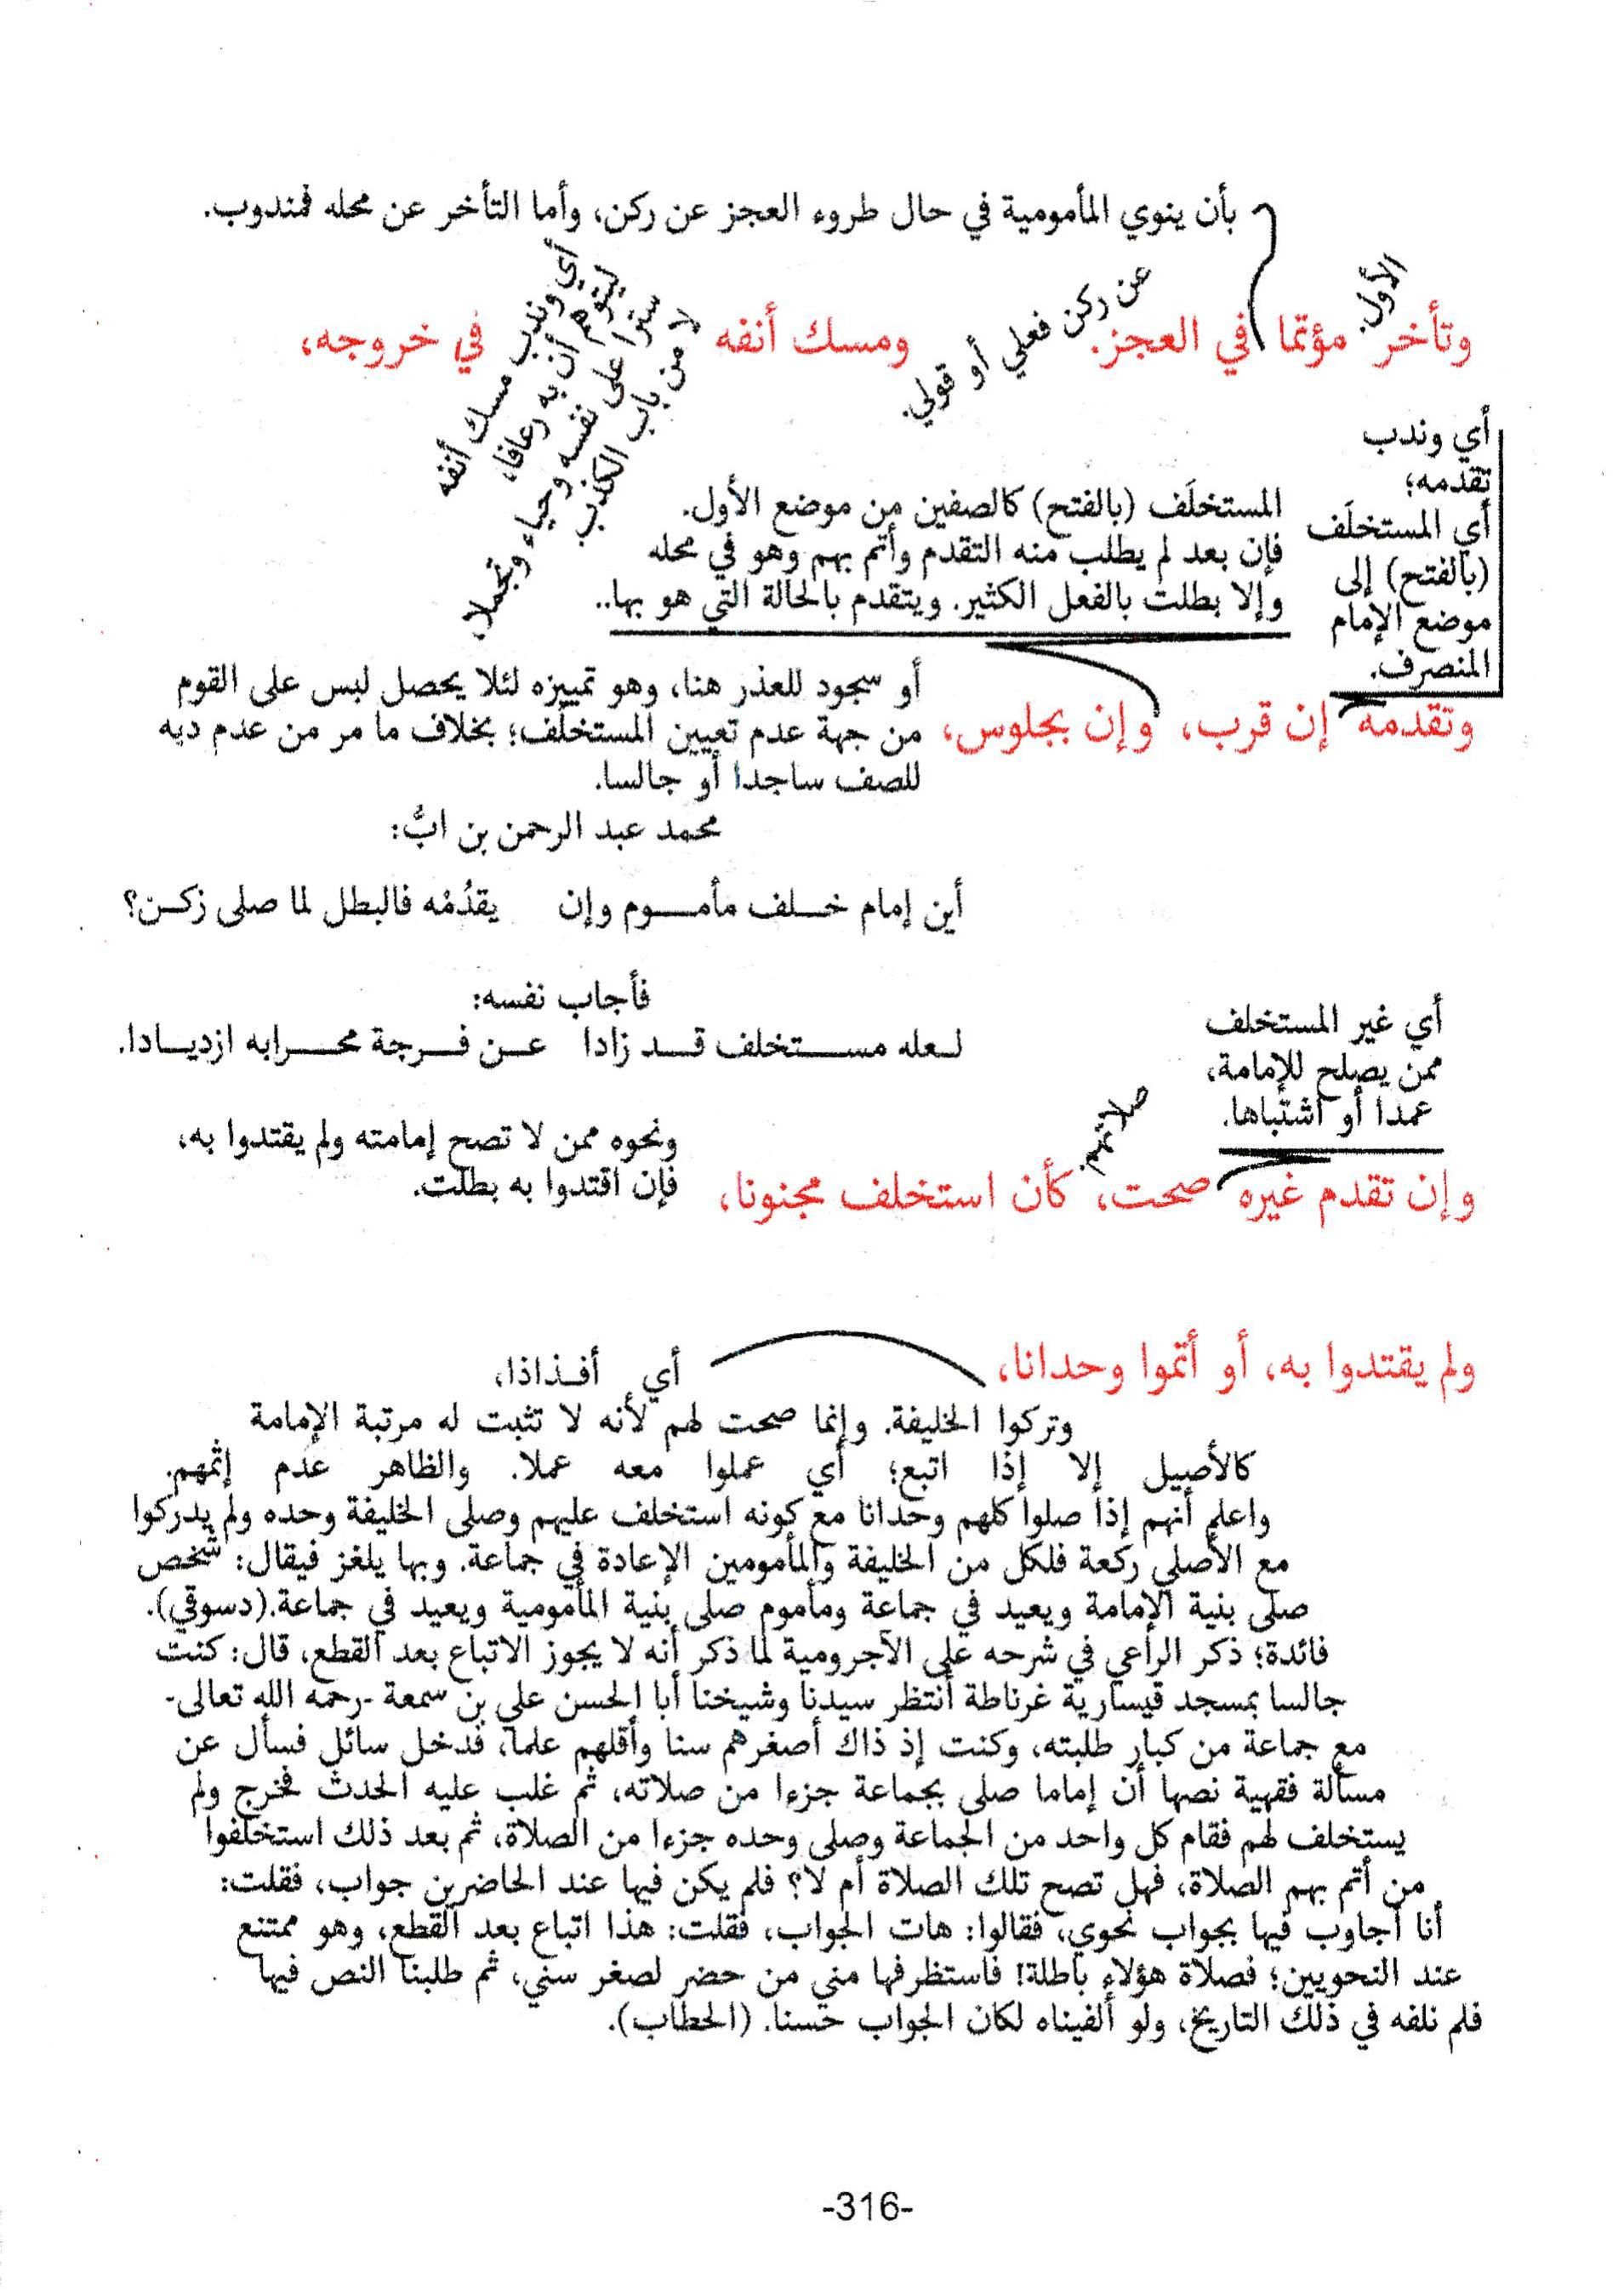 بأن ينوي المأمومية في حال طروء العجز عن ركن، وأما التأخر عن محله فمندوب.
وتأخر مؤتما في العجز. ومسك أنفه في خروجه،
الأول.
عن ركن فعلي أو قولي.
أي وندب مسك أنفه
ليتوهم أن به رعافا،
سترا على نفسه وحياء وتجملا،
لا من باب الكذب
أي وندب
تقدمه؛
أي المستخلَف
(بالفتح) إلى
موضع الإمام
المنصرف.
المستخلَف (بالفتح) كالصفين من موضع الأول.
فإن بعد لم يطلب منه التقدم وأتم بهم وهو في محله
وإلا بطلت بالفعل الكثير. ويتقدم بالحالة التي هو بها..
وتقدمه إن قرب، وإن بجلوس،
أو سجود للعذر هنا، وهو تمييزه لئلا يحصل لبس على القوم
من جهة عدم تعيين المستخلَف؛ بخلاف ما مر من عدم دبه
للصف ساجدا أو جالسا.
محمد عبد الرحمن بن ابُّ:
أين إمام خلف مأموم وإن يقدُمْه فالبطل لما صلى زكن؟
فأجاب نفسه:
لعله مستخلف قد زادا عن فرجة محرابه ازديادا.
أي غير المستخلف
ممن يصلح للإمامة،
عمدا أو اشتباها.
صلاتهم.
وإن تقدم غيره صحت، كأن استخلف مجنونا،
ونحوه ممن لا تصح إمامته ولم يقتدوا به،
فإن اقتدوا به بطلت.
ولم يقتدوا به، أو أتموا وحدانا،
أي أفذاذا،
وتركوا الخليفة. وإنما صحت لهم لأنه لا تثبت له مرتبة الإمامة
كالأصيل إلا إذا اتبع؛ أي عملوا معه عملا. والظاهر عدم إثمهم.
واعلم أنهم إذا صلوا كلهم وحدانا مع كونه استخلف عليهم وصلى الخليفة وحده ولم يدركوا
مع الأصلي ركعة فلكل من الخليفة والمأمومين الإعادة في جماعة. وبها يلغز فيقال: شخص
صلى بنية الإمامة ويعيد في جماعة ومأموم صلى بنية المأمومية ويعيد في جماعة.(دسوقي).
فائدة؛ ذكر الراعي في شرحه على الآجرومية لما ذكر أنه لا يجوز الاتباع بعد القطع، قال: كنت
جالسا بمسجد قيسارية غرناطة أنتظر سيدنا وشيخنا أبا الحسن علي بن سمعة -رحمه الله تعالى-
مع جماعة من كبار طلبته، وكنت إذ ذاك أصغرهم سنا وأقلهم علما، فدخل سائل فسأل عن
مسألة فقهية نصها أن إماما صلى بجماعة جزءا من صلاته، ثم غلب عليه الحدث فخرج ولم
يستخلف لهم فقام كل واحد من الجماعة وصلى وحده جزءا من الصلاة، ثم بعد ذلك استخلفوا
من أتم بهم الصلاة، فهل تصح تلك الصلاة أم لا؟ فلم يكن فيها عند الحاضرين جواب، فقلت:
أنا أجاوب فيها بجواب نحوي، فقالوا: هات الجواب، فقلت: هذا اتباع بعد القطع، وهو ممتنع
عند النحويين؛ فصلاة هؤلاء باطلة! فاستظرفها مني من حضر لصغر سني، ثم طلبنا النص فيها
فلم نلفه في ذلك التاريخ، ولو ألفيناه لكان الجواب حسنا. (الحطاب).
-316-